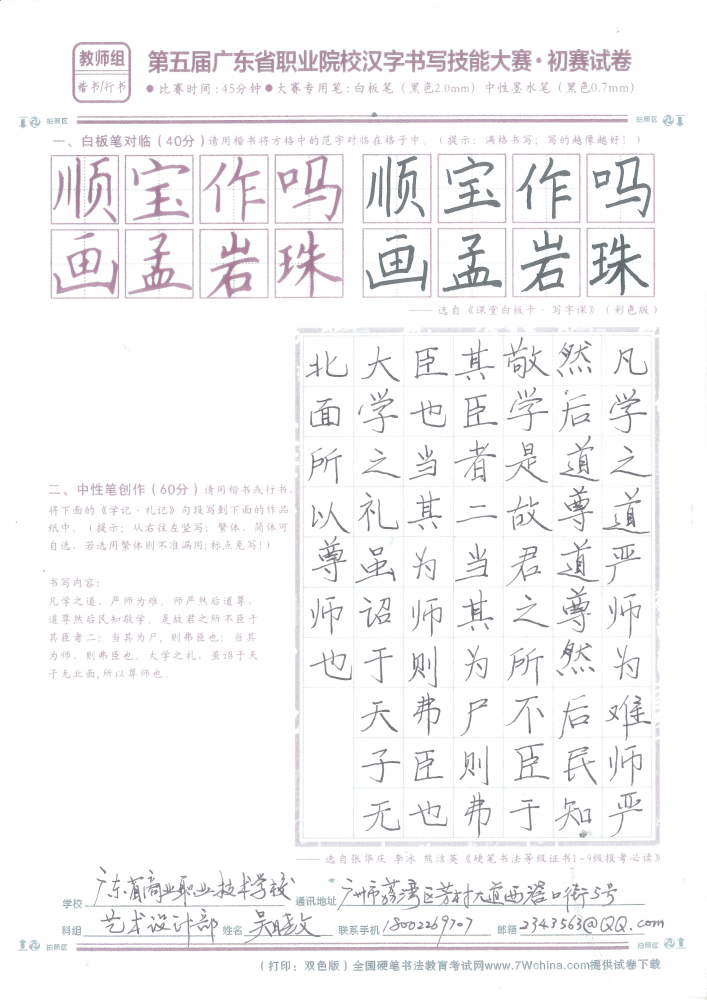 教师组
楷书/行书
第五届广东省职业院校汉字书写技能大赛·初赛试卷
●比赛时间:45分钟●大赛专用笔:白板笔(黑色2.0mm)中性墨水笔(黑色0.7mm)
拍照区
拍照区
一、白板笔对临(40分)请用楷书将方格中的范字对临在格子中。(提示:满格书写;写的越像越好!)
顺宝作吗 顺宝作吗
画孟岩珠 画孟岩珠
——选自《课堂白板卡·写字课》(彩色版)
凡学之道严师为难师严
然后道尊道尊然后民知
敬学是故君之所不臣于
其臣者二当其为尸则弗
臣也当其为师则弗臣也
大学之礼虽诏于天子无
北面所以尊师也
二、中性笔创作(60分)请用楷书或行书,
将下面的《学记·礼记》句段写到下面的作品
纸中。(提示:从右往左竖写;繁体、简体可
自选,若选用繁体则不准漏用;标点免写!)
书写内容:
凡学之道,严师为难。师严然后道尊,
道尊然后民知敬学。是故君之所不臣于
其臣者二:当其为尸,则弗臣也;当其
为师,则弗臣也。大学之礼,虽诏于天
子无北面,所以尊师也。
——选自张华庆 李冰 熊洁英《硬笔书法等级证书1~9级报考必读》
学校 广东省商业职业技术学校 通讯地址 广州市荔湾区芳村大道西 口街5号
科组 艺术设计部 姓名 吴晓文 联系手机 18002269707 邮箱 2343563@QQ.com
拍照区
拍照区
(打印:双色版)全国硬笔书法教育考试网www.7Wchina.com提供试卷下载